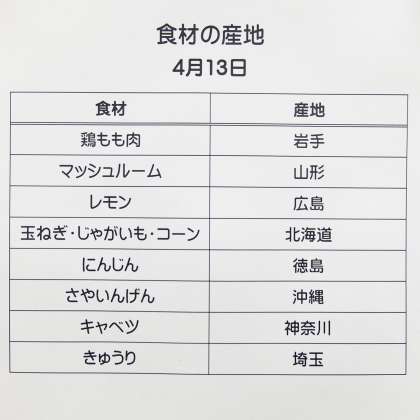 食材の産地
4月13日
食材 産地
鶏もも肉 岩手
マッシュルーム 山形
レモン 広島
玉ねぎ・じゃがいも・コーン 北海道
にんじん 徳島
さやいんげん 沖縄
キャベツ 神奈川
きゅうり 埼玉